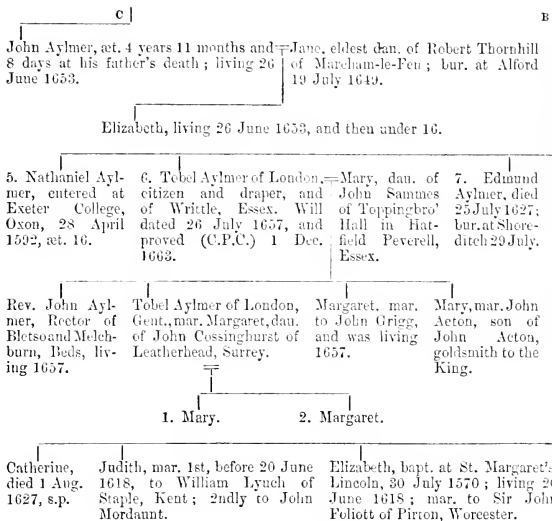 C
B
John Aylmer, æt. 4 years 11 months and
8 days at his father's death ; living 26
June 1653.
Jane, eldest dau. of Robert Thornhill
of Mareham-le-Fen ; bur. at Alford
19 July 1649.
Elizabeth, living 26 June 1653, and then under 16.
5. Nathaniel Ayl-
mer, entered at
Exeter College,
Oxon, 28 April
1592, æt. 16.
6. Tobel Aylmer of London,
citizen and draper, and
of Writtle, Essex. Will
dated 26 July 1657, and
proved (C.P.C.) 1 Dec.
1663.
Mary, dau. of
John Sammes
of Toppingbro'
Hall in Hat-
field Peverell,
Essex.
7. Edmund
Aylmer, died
25 July 1627;
bur. at Shore-
ditch 29 July.
Rev. John Ayl-
mer, Rector of
Bletso and Melch-
burn, Beds, liv-
ing 1657.
Tobel Aylmer of London,
Gent., mar. Margaret, dau.
of John Cossinghurst of
Leatherhead, Surrey.
Margaret, mar.
to John Grigg,
and was living
1657.
Mary, mar. John
Acton, son of
John Acton,
goldsmith to the
King.
1. Mary.
2. Margaret.
Catherine,
died 1 Aug.
1627, s.p.
Judith, mar. 1st, before 20 June
1618, to William Lynch of
Staple, Kent ; 2ndly to John
Mordaunt.
Elizabeth, bapt. at St. Margaret's
Lincoln, 30 July 1570 ; living
June 1618 ; mar. to Sir John
Foliott of Pirton, Worcester.